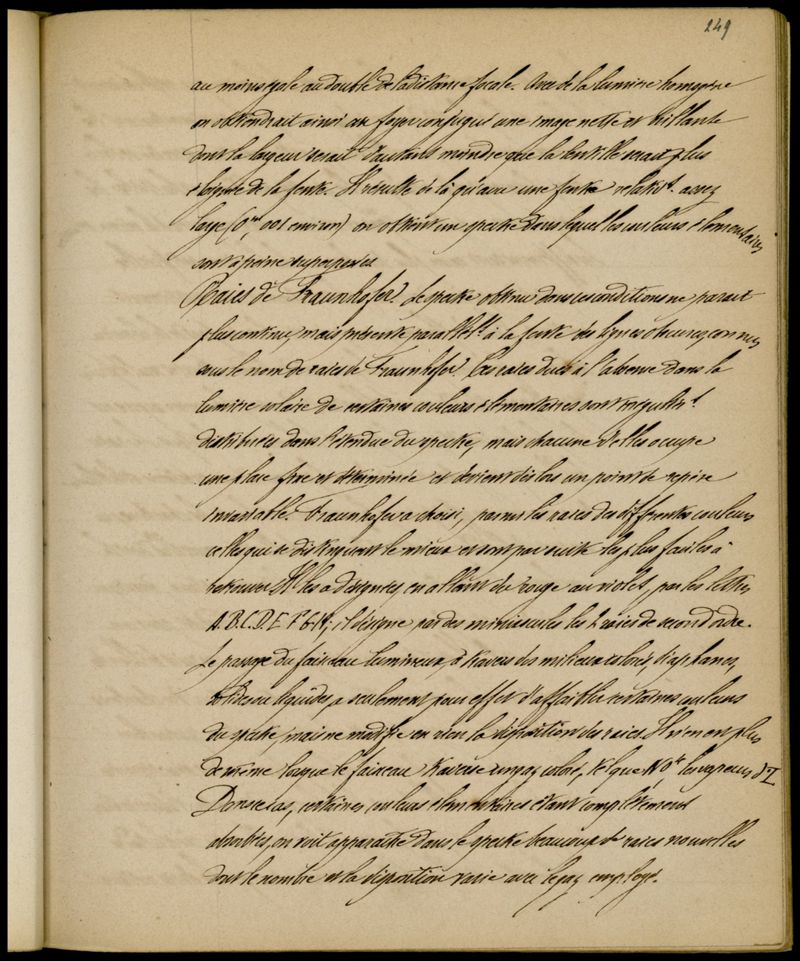 249
au moins égale au double de la distance focale. Avec de la lumière homogène
on obtiendrait ainsi au foyer conjugué une image nette et brillante
dont la largeur serait d'autant moindre que la lentille serait plus
éloignée de la fente. Il résulte de là qu'avec une fente relativt. assez
large (0m,001 environ) on obtient un spectre dans lequel les couleurs élémentaires
sont à peine superposées
(Raies de Fraunhofer) Le spectre obtenu dans ces conditions ne parait
plus continu, mais présente parallèlt. à la fente des lignes obscures, connues
sous le nom de raies de Fraunhofer. Ces raies dues à l'absence dans la
lumière solaire de certaines couleurs élémentaires sont irrégulièrt.
distribuées dans l'étendue du spectre, mais chacune d'elles occupe
une place fixe et déterminée et devient dès lors un point de repère
invariable. Fraunhofer a choisi, parmi les raies des différentes couleurs
celles qui se distinguent le mieux et sont par suite les plus faciles à
retrouver. Il les a désignées, en allant du rouge au violet, par les lettres
A.B.C.D.E.F.G.H; il désigne par des minuscules les 2 raies de second ordre.
Le passage du faisceau lumineux, à travers des milieux colorés, diaphanes,
solides ou liquides, a seulement pour effet d'affaiblir certaines couleurs
du spectre, mais ne modifie en rien la disposition des raies. Il n'en est plus
de même lorsque le faisceau traverse un gaz coloré, tel que les vapeurs d'I
Dans ce cas, certaines couleurs élémentaires étant complètement
absorbées, on voit apparaître dans le spectre beaucoup de raies nouvelles
dont le nombre et la disposition varie avec le gaz employé.